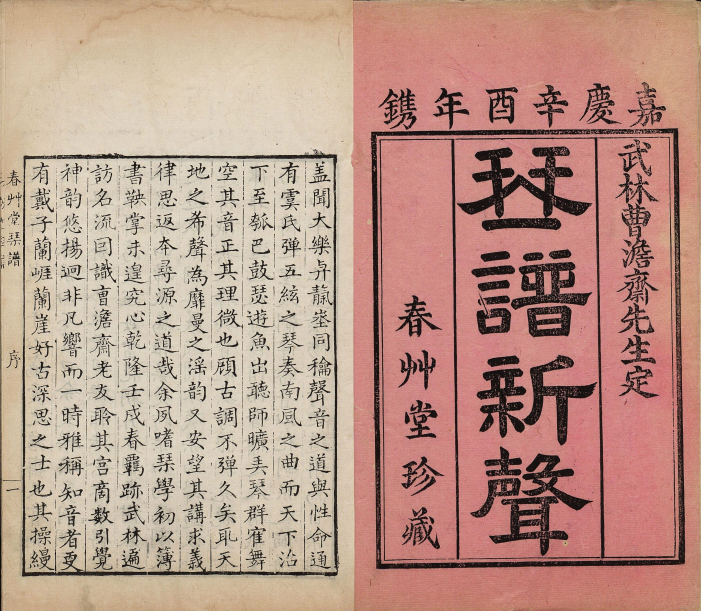 嘉慶辛酉年鐫
武林曹澹齋先生定
珡譜新聲
春艸堂珍藏
盖聞大樂靝埊同聲音之道與性命通
有虞氏彈五絃之琴奏南風之曲而天下治
下至瓠巴鼓瑟遊魚出聽師曠奏琴群寉舞
空其音正其理微也顧古調不彈久矣耴天
地之希聲為靡曼之滛韵又安望其講求義
律思返夲尋源之道哉余夙嗜琹學初以簿
書鞅掌未遑究心乾隆壬戌春羈跡武林遍
訪名流囙識曺澹齋老友聆其宮商數引覺
神韵悠揚逈非凡響而一時雅稱知音者更
有戴子蘭崕蘭崖好古深思之士也其操縵
春艸堂琹譜
序
一